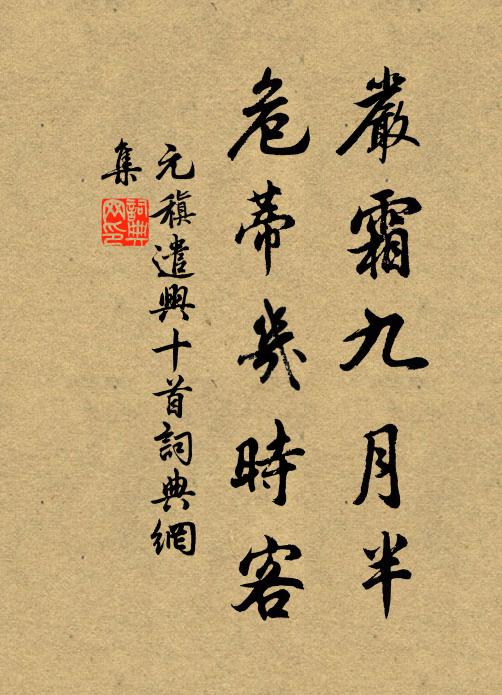 嚴霜九月半
危蒂幾時客
元稹遣興十首詞典網
集
詞典
網印